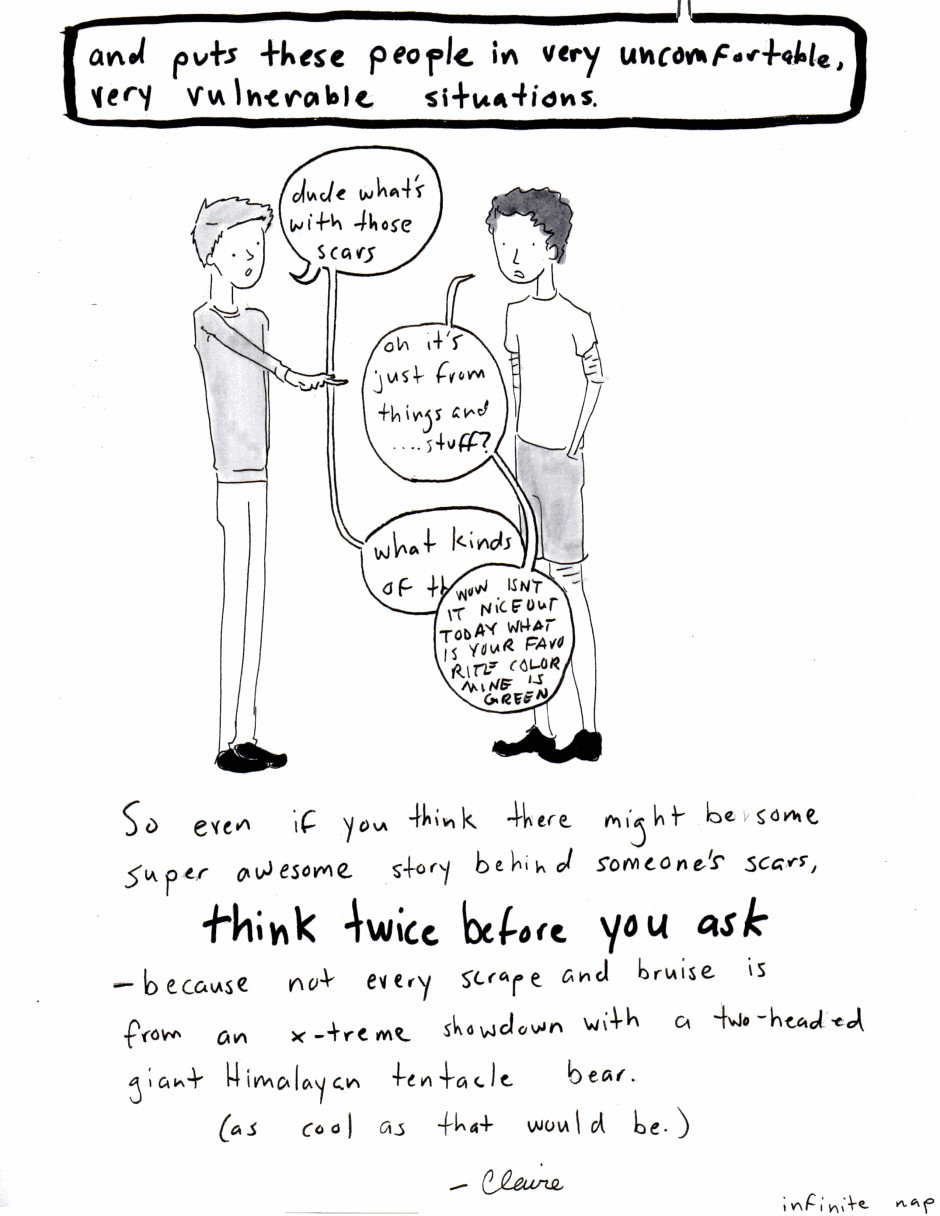 and puts these people in very uncomfortable,
very vulnerable situations.
dude what's
with those
scars
oh it's
just from
things and
....stuff?
what kinds
of th
WOW ISNT
IT NICE OUT
TODAY WHAT
IS YOUR FAVO
RITE COLOR
MINE IS
GREEN
So even if you think there might be some
super awesome story behind someone's scars,
think twice before you ask
- because not every scrape and bruise is
from an x-treme showdown with a two-headed
giant Himalayan tentacle bear.
(as cool as that would be.)
- Claire
infinite nap